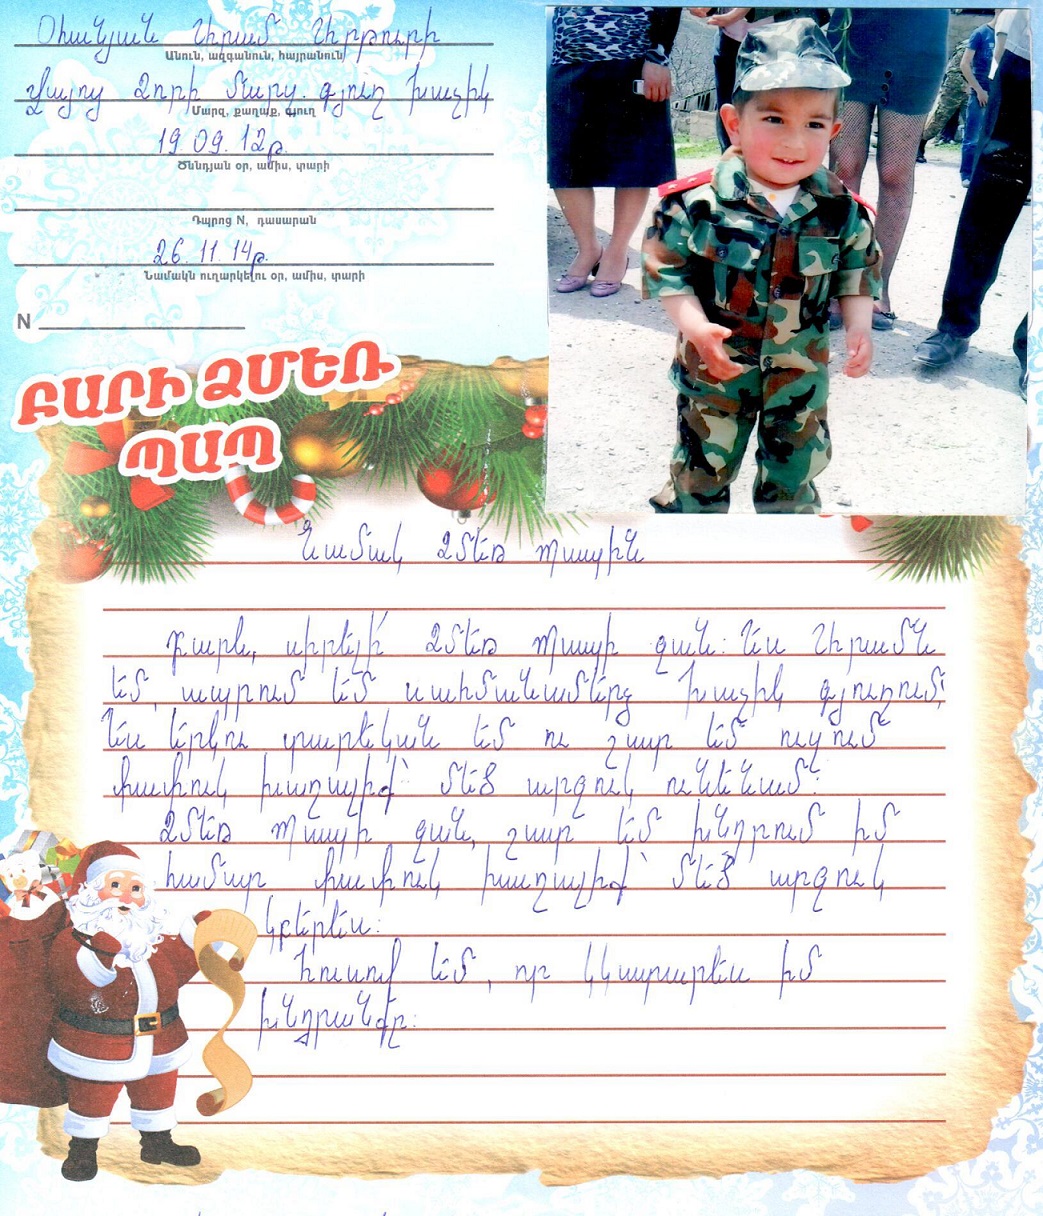 Օհանյան Արամ Արթուրի
Անուն, ազգանուն, հայրանուն
Վայոց Ձորի մարզ. գյուղ Խաչիկ
Մարզ, քաղաք, գյուղ
19. 09. 12թ.
Ծննդյան օր, ամիս, տարի
Դպրոց N, դասարան
26. 11. 14թ.
Նամակն ուղարկելու օր, ամիս, տարի
N
ԲԱՐԻ ՁՄԵՌ
ՊԱՊ
Նամակ Ձմեռ պապին
Բարև, սիրելի՛ Ձմեռ պապի ջան: Ես Արամն
եմ, ապրում եմ սահմանամերձ Խաչիկ գյուղում:
Ես երկու տարեկան եմ ու շատ եմ ուզում
փափուկ խաղալիք՝ մեծ արջուկ ունենամ:
Ձմեռ պապի ջան, շատ եմ խնդրում իմ
համար փափուկ խաղալիք՝ մեծ արջուկ
կբերես:
Հուսով եմ, որ կկատարես իմ
խնդրանքը: